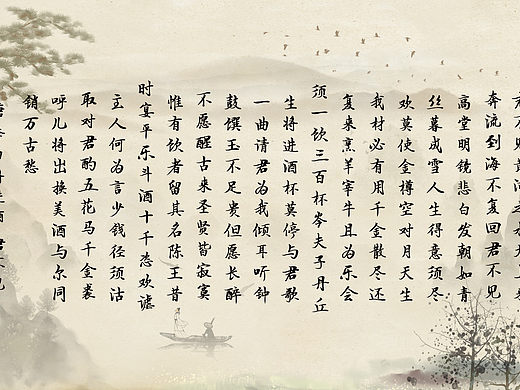 奔流到海不复回君不见
高堂明镜悲白发朝如青
丝暮成雪人生得意须尽
欢莫使金樽空对月天生
我材必有用千金散尽还
复来烹羊宰牛且为乐会
须一饮三百杯岑夫子丹丘
生将进酒杯莫停与君歌
一曲请君为我倾耳听钟
鼓馔玉不足贵但愿长醉
不愿醒古来圣贤皆寂寞
惟有饮者留其名陈王昔
时宴平乐斗酒十千恣欢谑
主人何为言少钱径须沽
取对君酌五花马千金裘
呼儿将出换美酒与尔同
销万古愁